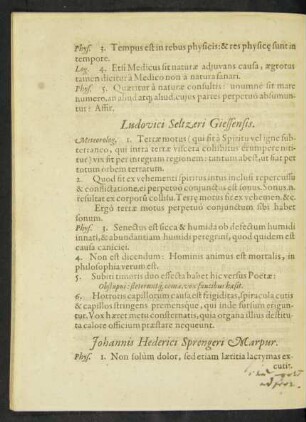 Phys. 3. Tempus est in rebus physicis: & res physicę sunt in
tempore.
Log. 4. Etsi Medicus sit naturæ adjuvans causa, ægrotus
tamen dicitur à Medico non à natura sanari.
Phys. 5. Quæritur â naturæ consultis: unumne sit mare
numero, an aliud atq; aliud, cujus partes perpetuò absumuntur:
Assir.
Ludovici Seltzeri Giessensis.
Meteorolog. 1. Terræ motus (qui fit â Spiritu vel igne subterraneo,
qui intra terræ viscera cohibitus erumpere nititur)
vis fit per integram regionem: tantum abest, ut fiat per
totum orbem terrarum.
2. Quod fit ex vehementi spiritus intus inclusi repercussu
& conflictatione, ei perpetuò conjunctus est sonus. Sonus.n.
resultat ex corporū collisu. Terrę motus fit ex vehemen. &c.
Ergò terræ motus perpetuò conjunctum sibi habet
sonum.
Phys. 3. Senectus est sicca & humida ob defectum humidi
innati, & abundantiam humidi peregrini, quod quidem est
causa canitiei.
4. Non est dicendum: Hominis animus est mortalis, in
philosophia verum est.
5. Subiti timoris duo effecta habet hic versus Poëtæ:
Obstupui: steteruntq́; comæ, vox faucibus hæsit.
6. Horroris capillorum causa est frigiditas, spiracula cutis
& capillos stringens premensque, qui inde sursum eriguntur.
Vox hæret metu consternatis, quia organa illius destituta
calore officium præstare nequeunt.
Johannis Hederici Sprengeri Marpur.
Phys. 1. Non solùm dolor, sed etiam lætitia lacrymas excutit.